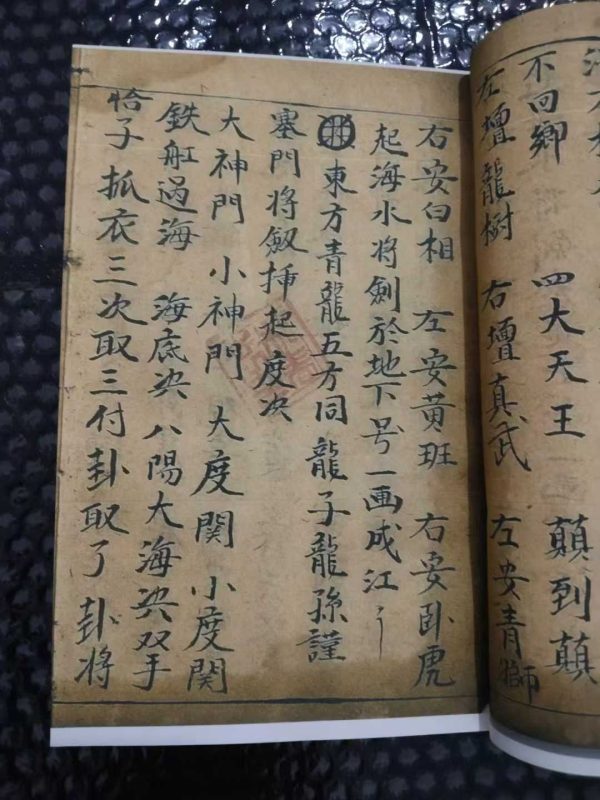 不回鄉 四大天王 顛到顛
左壇龍樹 右壇真武 左安青獅
右安白相 左安黃班 右安卧虎
起海水將劍於地下号一画成江
東方青龍五方同 龍子龍孫謹
塞門將劔揷起度决
大神門 小神門 大度関 小度関
鉄舡過海 海底决 八陽大海决双手
恰子抓衣三次取三付卦取了卦將